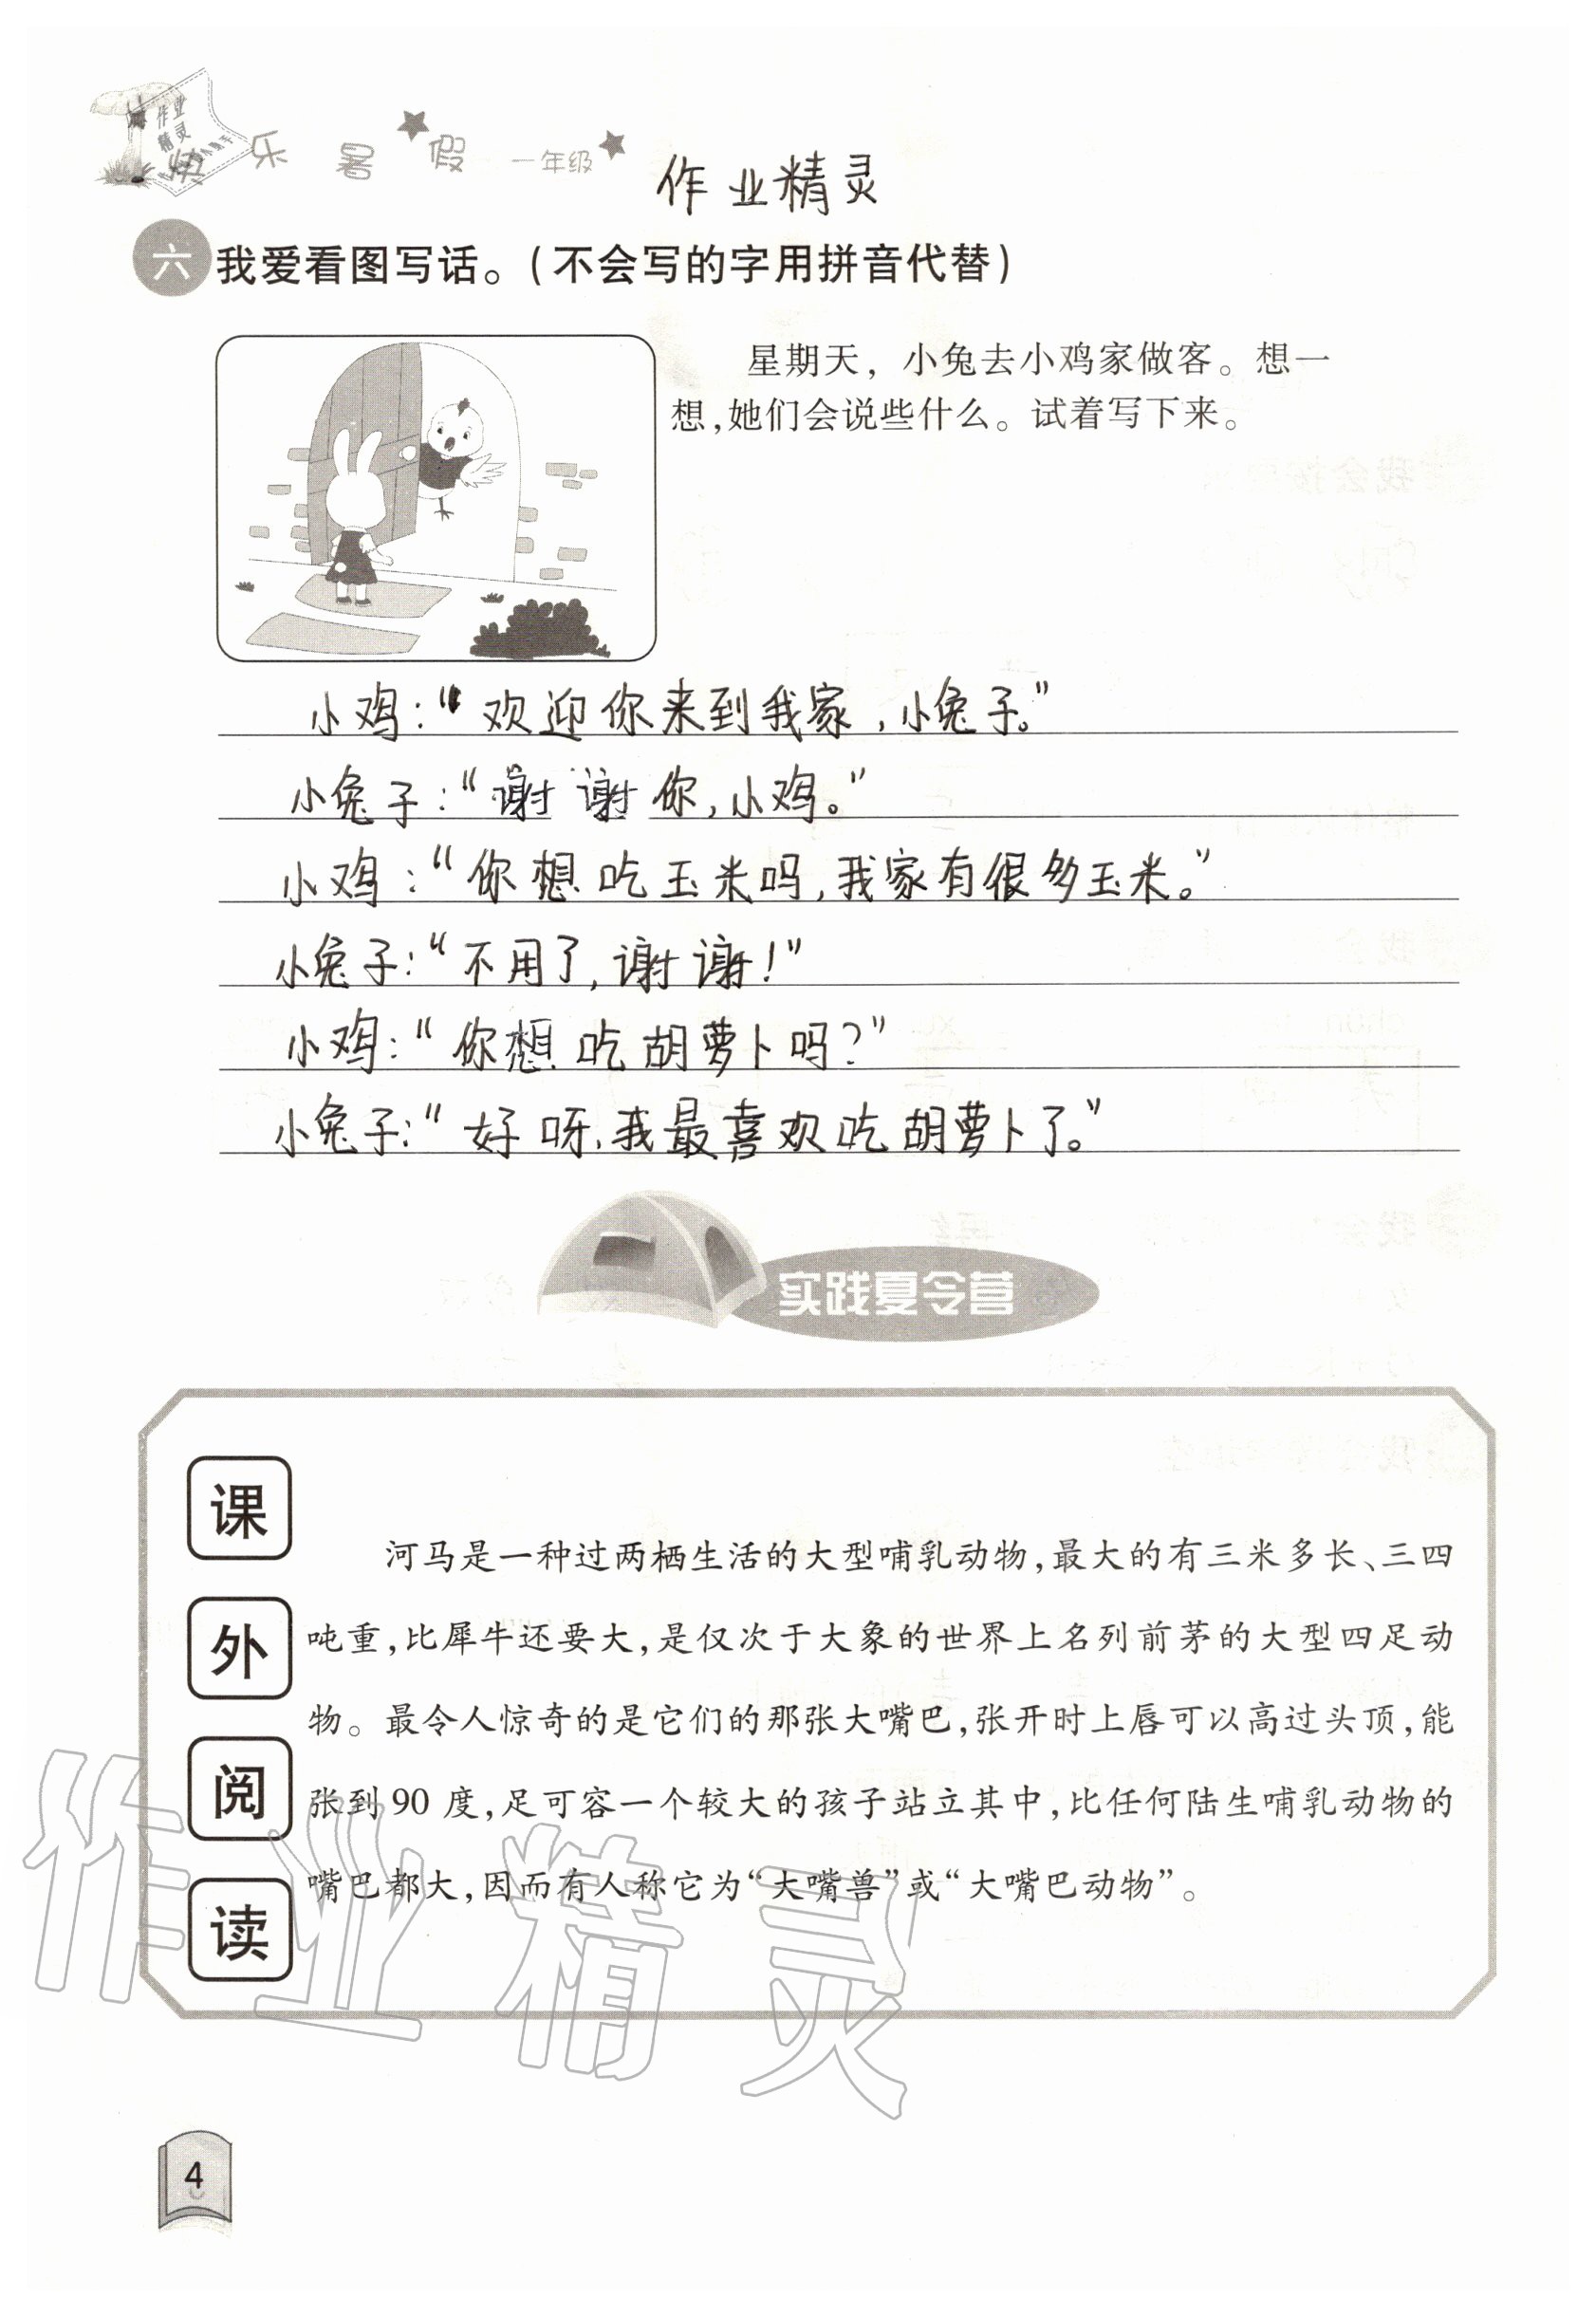 作业
精灵
快乐暑假 一年级
作业精灵
六 我爱看图写话。(不会写的字用拼音代替)
星期天，小兔去小鸡家做客。想一
想,她们会说些什么。试着写下来。
小鸡:“欢迎你来到我家,小兔子。”
小兔子:“谢谢你,小鸡。”
小鸡:“你想吃玉米吗,我家有很多玉米。”
小兔子:“不用了,谢谢!”
小鸡:“你想吃胡萝卜吗?”
小兔子:“好呀,我最喜欢吃胡萝卜了。”
实践夏令营
课外阅读
河马是一种过两栖生活的大型哺乳动物,最大的有三米多长、三四
吨重,比犀牛还要大,是仅次于大象的世界上名列前茅的大型四足动
物。最令人惊奇的是它们的那张大嘴巴,张开时上唇可以高过头顶,能
张到90度,足可容一个较大的孩子站立其中,比任何陆生哺乳动物的
嘴巴都大,因而有人称它为“大嘴兽”或“大嘴巴动物”。
作业精灵
4